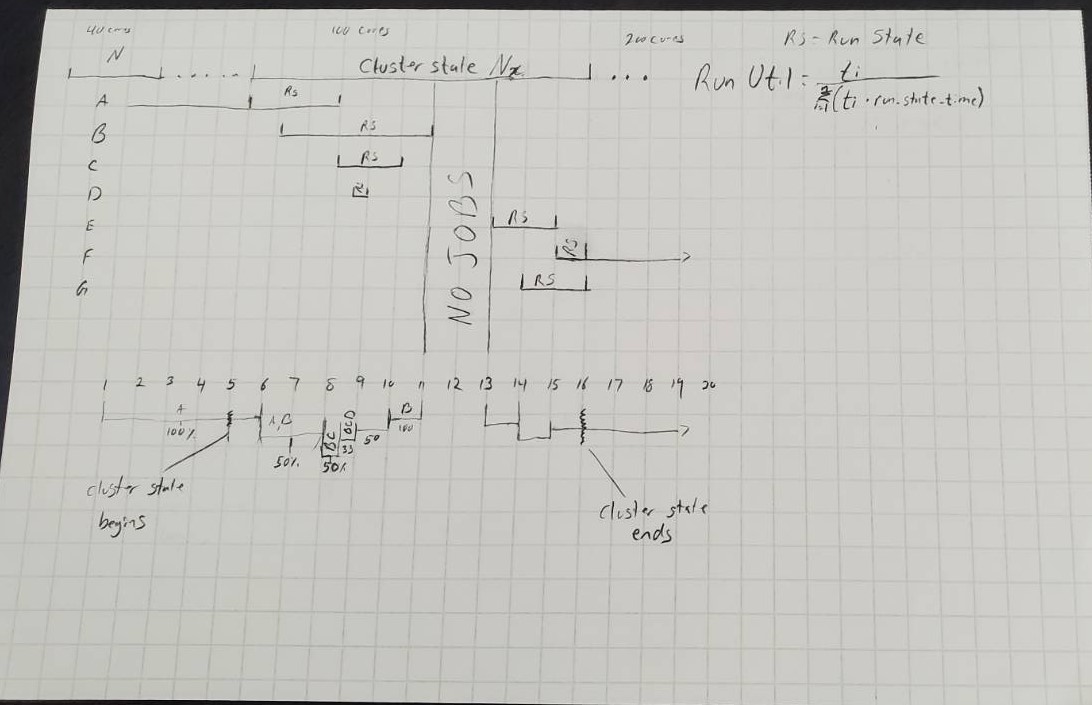 40 cores 100 cores 200 cores RS - Run State
N ...... Cluster state Nx ...
Run Util = ti
(ti · run_state_time)
A RS
B RS
C RS
D
E RS
F RS
G RS
NO JOBS
1 2 3 4 5 6 7 8 9 10 11 12 13 14 15 16 17 18 19 20
A A,B BC BCD B
100% 50% 50% 33 50 100
cluster state
begins
Cluster state
ends